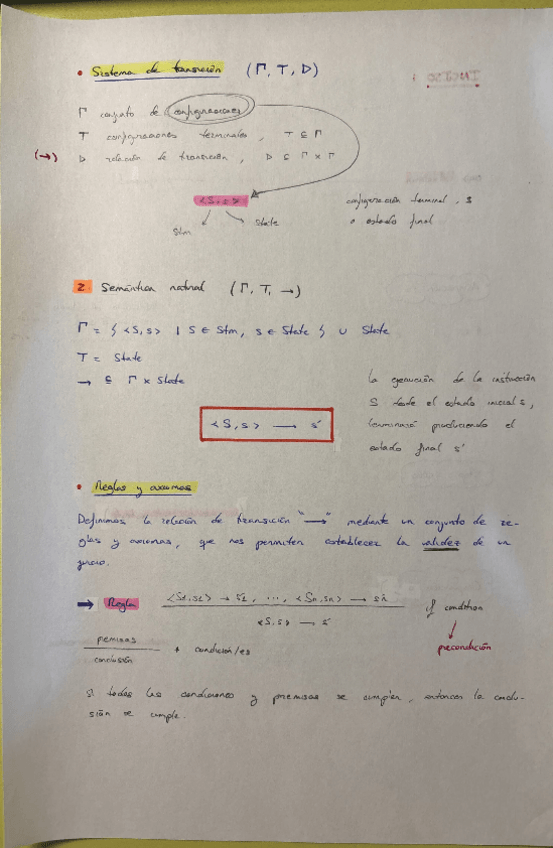 • Sistema de transición (Γ, T, D)
Γ conjunto de configuraciones
T configuraciones terminales, T ⊆ Γ
(→) D relación de transición, D ⊆ Γ x Γ
<S,s>
Stm State
configuración terminal, s
o estado final
2. Semántica natural (Γ, T, →)
Γ = { <S,s> | S ∈ Stm, s ∈ State } ∪ State
T = State
→ ⊆ Γ x State
la ejecución de la instrucción
S desde el estado inicial s,
terminará produciendo el
estado final s'
<S,s> → s'
• Reglas y axiomas
Definimos la relación de transición "→" mediante un conjunto de re-
glas y axiomas, que nos permiten establecer la validez de un
juicio.
⇒ Regla <S1,s1> → s'1, ..., <Sn,sn> → s'n if condition
<S,s> → s'
precondición
premisas
conclusión + condición/es
Si todas las condiciones y premisas se cumplen, entonces la conclu-
sión se cumple.